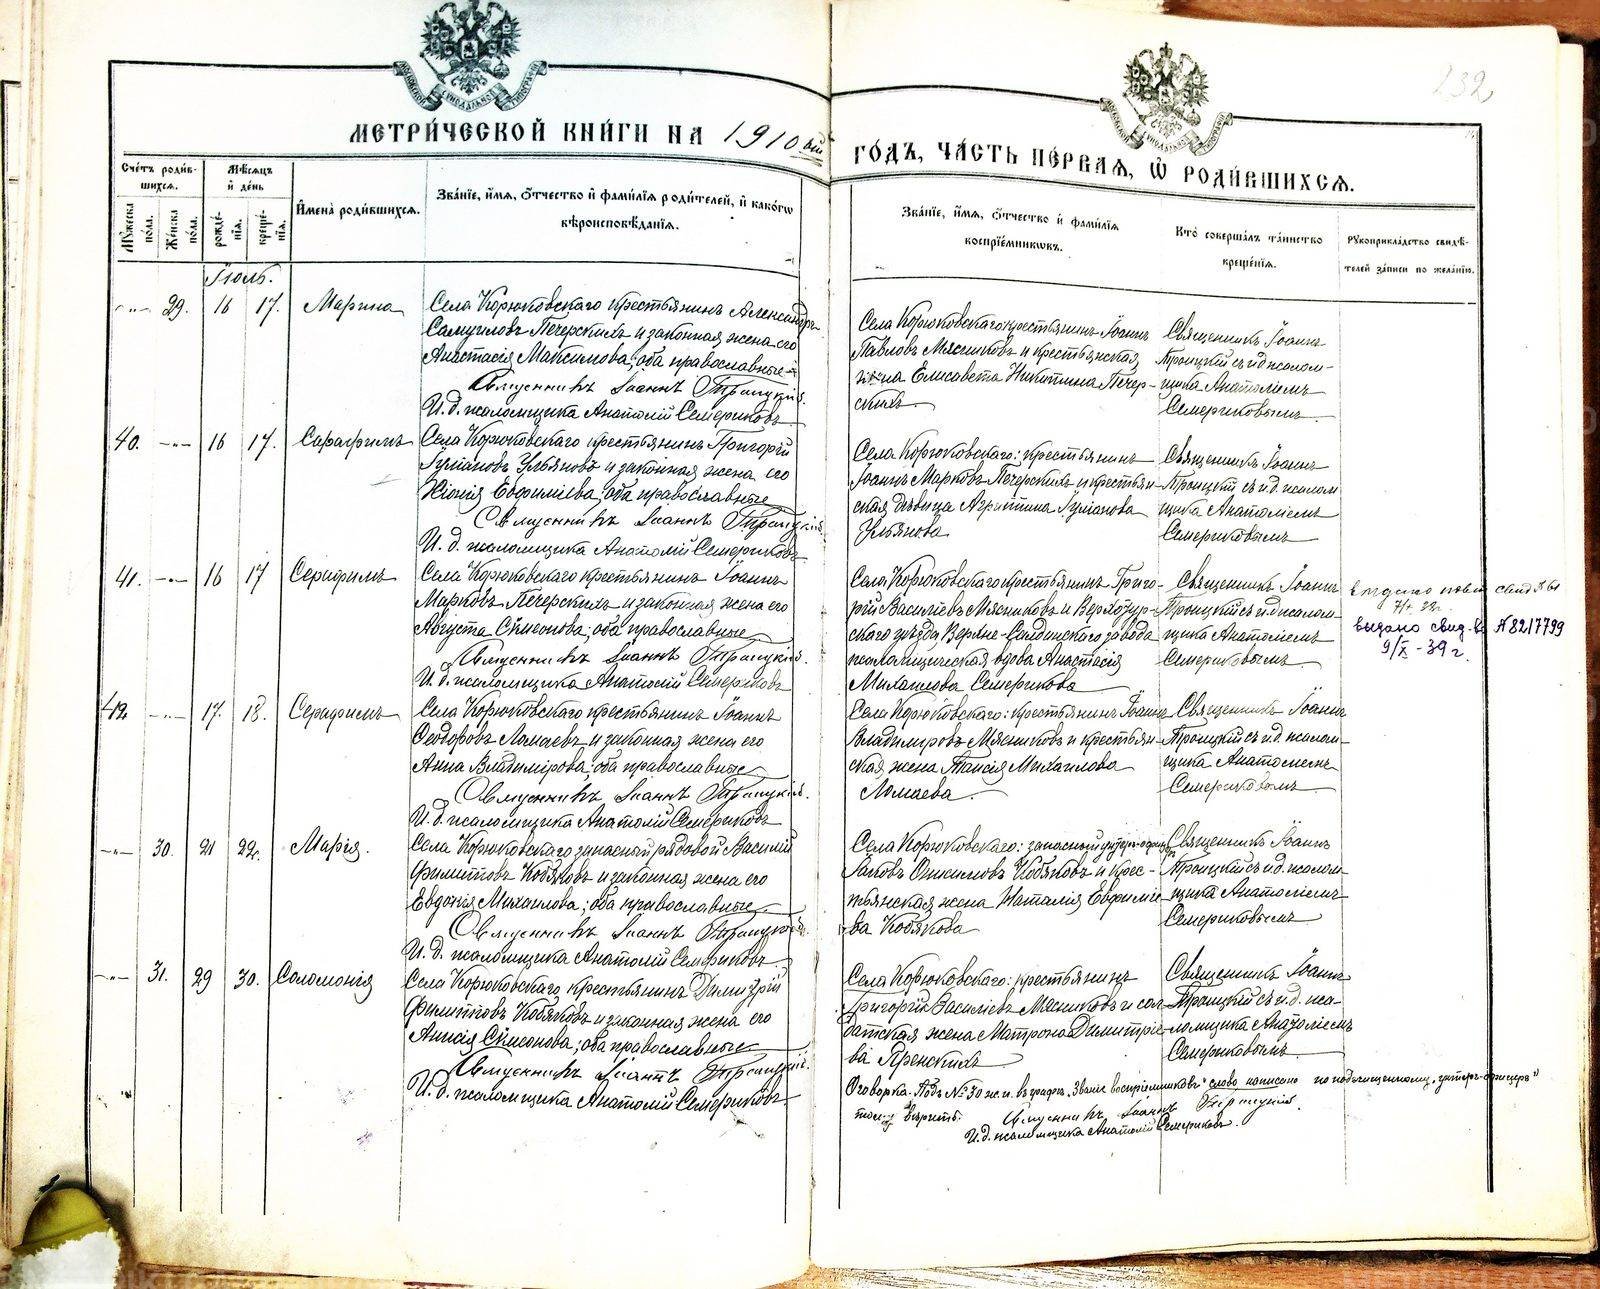 232
МЕТРИ́ЧЕСКОЙ КНИ́ГИ НА 1910 ый
ГОДЪ, ЧА́СТЬ ПЕ́РВАЯ, Ѿ РОДИ́ВШИХСЯ.
Сче́тъ роди́в-
шихся.
Му́жеска по́ла.
Же́нска по́ла.
Мѣ́сяцъ
и҆ де́нь
рожде́-
нїя.
креще́-
нїя.
И҆мена̀ роди́вшихся.
Зва́нїе, и҆́мя, ѻ҆́тчество и҆ фами́лїя роди́телей, и҆ како́гѡ
вѣроисповѣ́данїя.
Зва́нїе, и҆́мя, ѻ҆́тчество и҆ фами́лїя
воспрїе́мникѡвъ.
Кто̀ соверша́лъ та́инство
креще́нїя.
Рукоприкла́дство свидѣ́-
телей за́писи по жела́нїю.
Іюль.
-"- 29. 16 17. Марина
Села Корюковскаго крестьянинъ Александръ
Самуиловъ Печерскихъ и законная жена его
Анастасія Максимова; оба православные
Священникъ Іоаннъ Троицкій.
И. д. псаломщика Анатолій Семериковъ
Села Корюковскаго крестьянинъ Іоаннъ
Павловъ Мясниковъ и крестьянская
жена Елисавета Никитина Печер-
скихъ.
Священникъ Іоаннъ
Троицкій съ и.д. псалом-
щика Анатоліемъ
Семериковымъ.
40. -"- 16 17. Серафимъ
Села Корюковскаго крестьянинъ Григорій
Ульяновъ и законная жена его
Хіонія Евфиміева; оба православные
Священникъ Іоаннъ Троицкій
И. д. псаломщика Анатолій Семериковъ
Села Корюковскаго: крестьянинъ
Іоаннъ Марковъ Печерскихъ и крестьян-
ская дѣвица Агриппина
Ульянова
Священникъ Іоаннъ
Троицкій съ и.д. псалом
щика Анатоліемъ
Семериковымъ
41. -"- 16 17 Серафимъ
Села Корюковскаго крестьянинъ Іоаннъ
Марковъ Печерскихъ и законная жена его
Августа Сѵмеонова; оба православные
Священникъ Іоаннъ Троицкій.
И. д. псаломщика Анатолій Семериковъ
Села Корюковскаго крестьянинъ Григо-
рій Василіевъ Мясниковъ и Верхотур-
скаго уѣзда Верхне-Салдинскаго завода
псаломщическая вдова Анастасія
Михаилова Семерикова
Священникъ Іоаннъ
Троицкій съ и.д. псалом-
щика Анатоліемъ
Семериковымъ.
выдано свид-во № 8217799
9/X - 39 г.
42. -"- 17. 18. Серафимъ
Села Корюковскаго крестьянинъ Іоаннъ
Ѳеодоровъ Ломаевъ и законная жена его
Анна Владимірова; оба православные
Священникъ Іоаннъ Троицкій.
И. д. псаломщика Анатолій Семериковъ
Села Корюковскаго: крестьянинъ Іоаннъ
Владиміровъ Мясниковъ и крестьян-
ская жена Таисія Михаилова
Ломаева.
Священникъ Іоаннъ
Троицкій съ и.д. псалом-
щика Анатоліемъ
Семериковымъ.
-"- 30. 21 22. Марія.
Села Корюковскаго запасный рядовой Василій
Филипповъ Кобяковъ и законная жена его
Евдокія Михаилова; оба православные
Священникъ Іоаннъ Троицкій.
И. д. псаломщика Анатолій Семериковъ
Села Корюковскаго: запасный унтеръ-офицеръ
Іаковъ Кобяковъ и крес-
тьянская жена Наталія Евфиміе-
ва Кобякова
Священникъ Іоаннъ
Троицкій съ и.д. псалом-
щика Анатоліемъ
Семериковымъ
-"- 31. 29 30. Соломонія
Села Корюковскаго крестьянинъ Димитрій
Филипповъ Кобяковъ и законная жена его
Анисія Сѵмеонова; оба православные
Священникъ Іоаннъ Троицкій.
И. д. псаломщика Анатолій Семериковъ.
Села Корюковскаго: крестьянинъ
Григорій Василіевъ Мясниковъ и сол-
датская жена Матрона Димитріе-
ва Пренскихъ
Священникъ Іоаннъ
Троицкій съ и.д. пса-
ломщика Анатоліемъ
Семериковымъ.
Оговорка. Подъ № 30 ж.п. въ графѣ „Званіе воспріемниковъ" слово написано по подчищенному „унтеръ-офицеръ"
тому вѣрить. Священникъ Іоаннъ Троицкій.
И.д. псаломщика Анатолій Семериковъ.